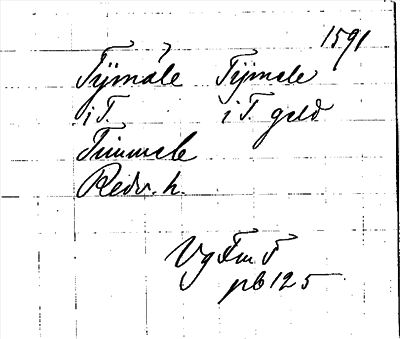 1591
Tÿmåle Tÿmele
i T. i T. gäld
Timmele
Redv. h.
Vg Fm F
nb 125